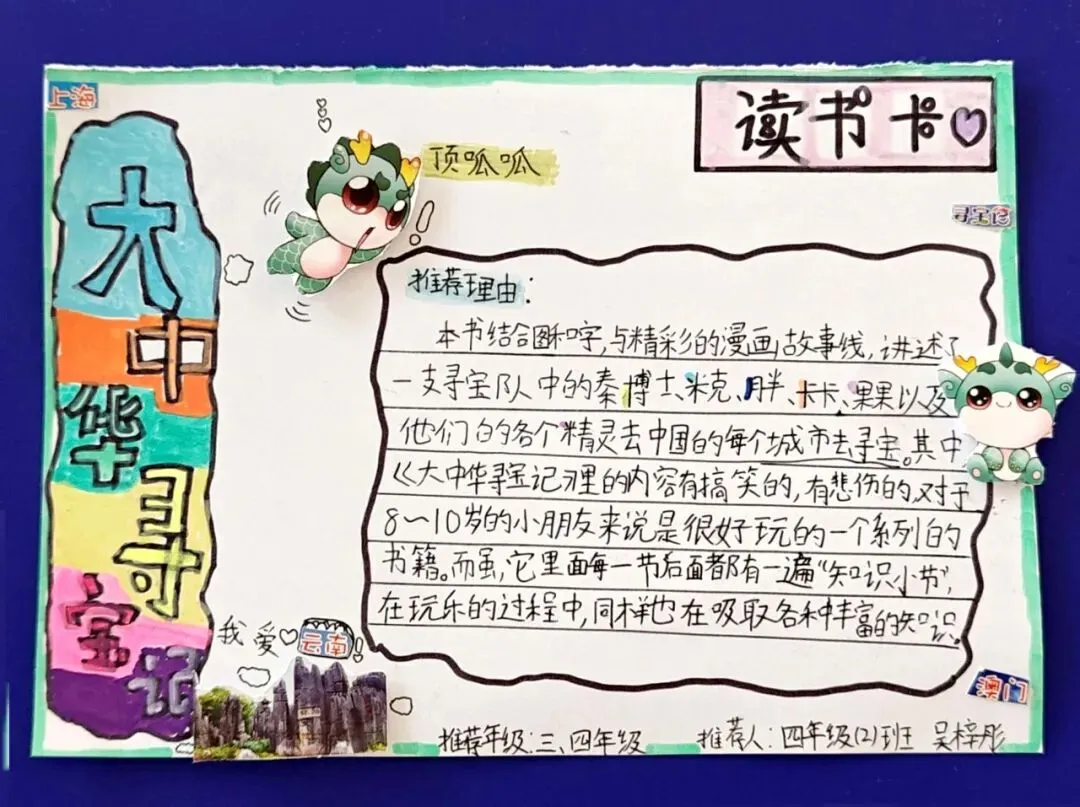 上海
读书卡
大中华寻宝记
顶呱呱
寻宝记
推荐理由:
本书结合图和字,与精彩的漫画故事线,讲述了
一支寻宝队中的秦博士、米克、胖、卡卡、果果以及
他们的各个精灵去中国的每个城市去寻宝。其中
《大中华寻宝记》里的内容有搞笑的,有悲伤的,对于
8~10岁的小朋友来说是很好玩的一个系列的
书籍。而虽,它里面每一节后面都有一遍“知识小节”,
在玩乐的过程中,同样也在吸取各种丰富的知识。
我爱云南!
澳门
推荐年级:三、四年级
推荐人:四年级(2)班 吴梓彤